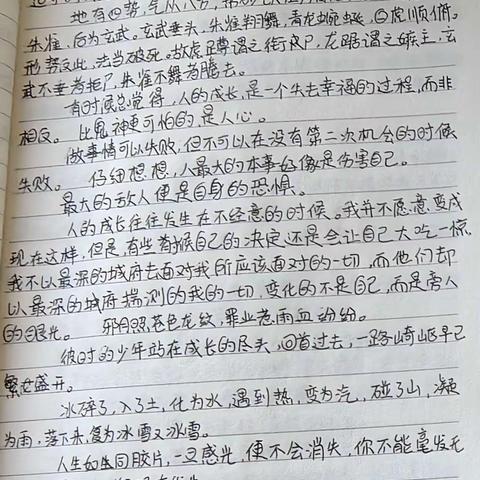 地有四势，气从八方，
朱雀，后为玄武。玄武垂头，朱雀翔舞，青龙蜿蜒，白虎顺俯。
形势反此，法当破死。故虎蹲谓之衔尸，龙踞谓之嫉主，玄
武不垂者拒尸，朱雀不舞者腾去。
有时候总觉得，人的成长，是一个失去幸福的过程，而非
相反。 比鬼神更可怕的是人心。
做事情可以失败，但不可以在没有第二次机会的时候
失败。 仔细想想，人最大的本事好像是伤害自己。
最大的敌人便是自身的恐惧。
人的成长往往发生在不经意的时候。我并不愿意变成
现在这样，但是，有些时候自己的决定还是会让自己大吃一惊
我不以最深的城府去面对我所应该面对的一切，而他们却
以最深的城府揣测的我的一切，变化的不是自己，而是旁人
的眼光。 邪月照苍色龙纹，罪业惹雨血纷纷。
彼时的少年站在成长的尽头，回首过去，一路崎岖早已
繁花盛开。
冰碎了，入了土，化为水，遇到热，变为汽，碰了山，凝
为雨，落下来，复为冰雪又冰雪。
人生如生同胶片，一旦感光，便不会消失，你不能毫发无